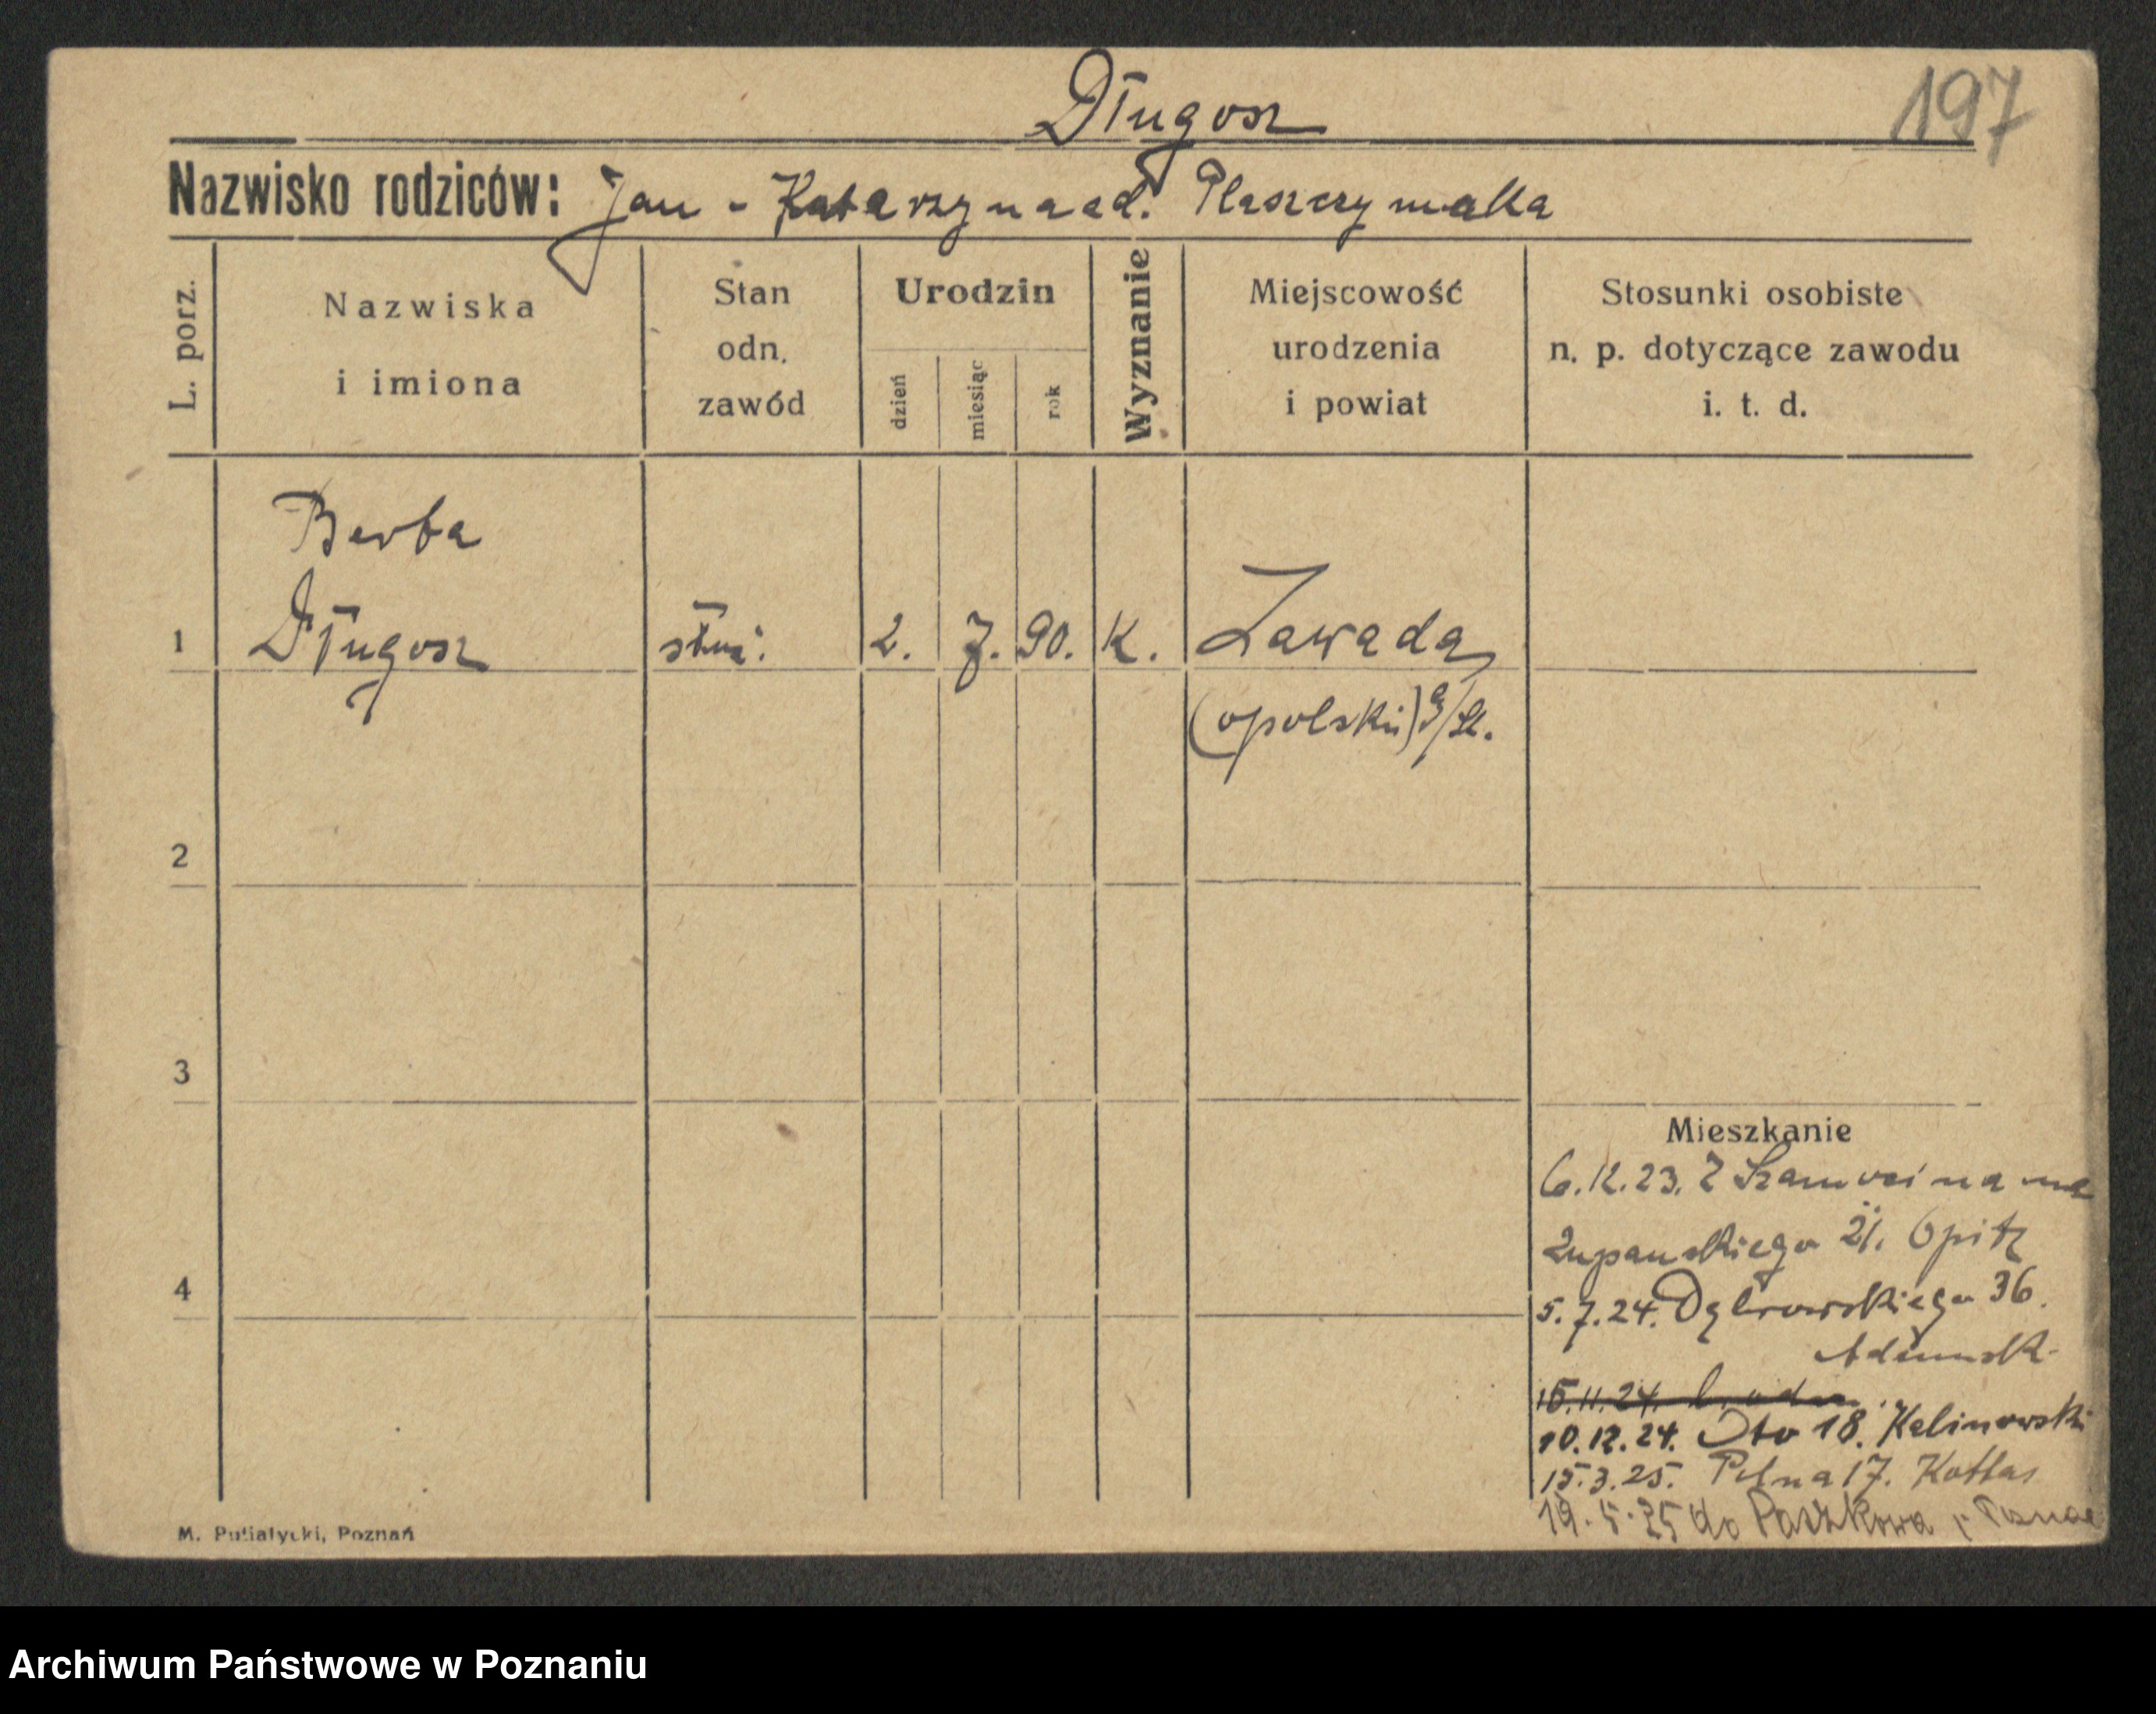 Długosz
197
Nazwisko rodziców: Jan - Katarzyna
L. porz.
Nazwiska
i imiona
Stan
odn.
zawód
Urodzin
dzień
miesiąc
rok
Wyznanie
Miejscowość
urodzenia
i powiat
Stosunki osobiste
n. p. dotyczące zawodu
i. t. d.
Barba
1 Długosz służ. 2. 7. 90. K. Zawada
(opolski) G/Śl.
2
3
4
Mieszkanie
6.12.23. Z Szamocina na
Żupańskiego 21. Opitz
5.7.24. Dąbrowskiego 36.
Adamsk
15.11.24.
10.12.24. Dto 18. Kalinowski
15.3.25. Polna 17. Kottas
19.5.25 do Paszkowa
M. Putiatycki, Poznań
Archiwum Państwowe w Poznaniu